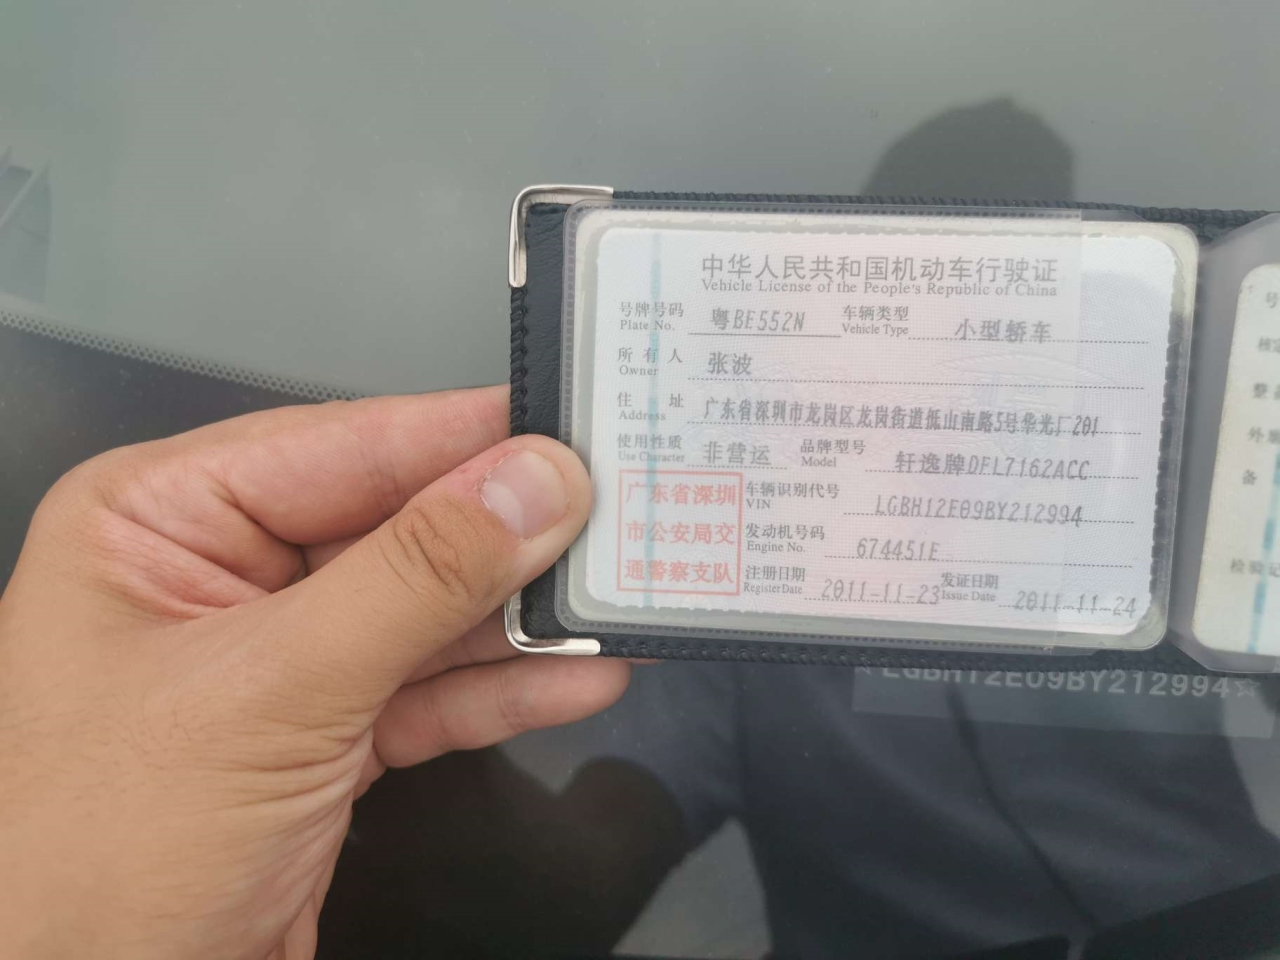 中华人民共和国机动车行驶证
Vehicle License of the People's Republic of China
号牌号码 Plate No. 粤BE552N 车辆类型 Vehicle Type 小型轿车
所有人 Owner 张波
住址 Address 广东省深圳市龙岗区龙岗街道低山南路5号华光厂201
使用性质 Use Character 非营运 品牌型号 Model 轩逸牌DFL7162ACC
广东省深圳 车辆识别代号 VIN LGBH12E09BY212994
市公安局交 发动机号码 Engine No. 674451E
通警察支队 注册日期 Register Date 2011-11-23 发证日期 Issue Date 2011-11-24
号
核定
整
外
备
检验记
☆LGBH12E09BY212994☆